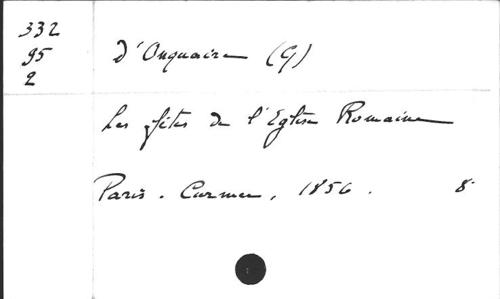 332
95
2
D'Onquaire (G)
Les fêtes de l'Eglise Romaine
Paris. Curmer, 1856. 8°